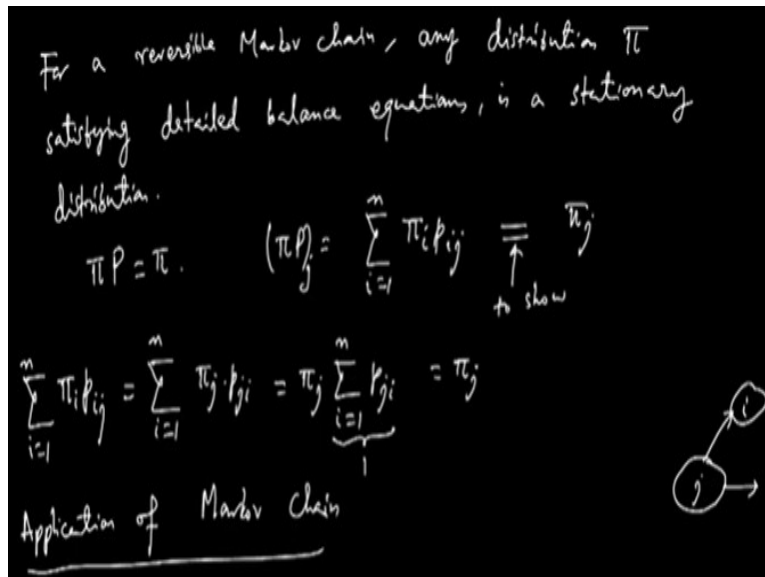 For a reversible Markov chain, any distribution π
satisfying detailed balance equations, is a stationary
distribution.
πP = π. (πP)_j = ∑_{i=1}^{n} π_i p_{ij} = π_j
to show
∑_{i=1}^{n} π_i p_{ij} = ∑_{i=1}^{n} π_j · p_{ji} = π_j ∑_{i=1}^{n} p_{ji} = π_j
1
i
j
Application of Markov Chain